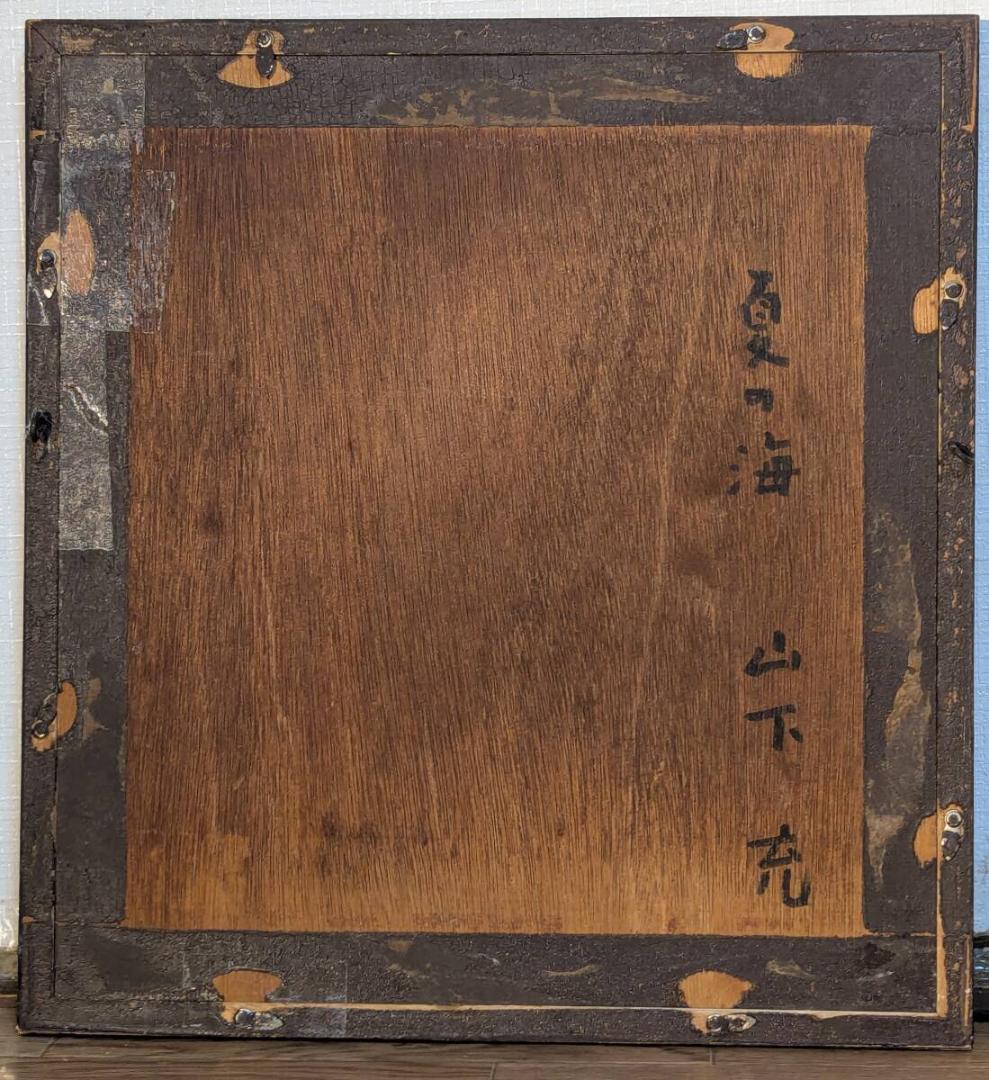 夏の海 山下 充